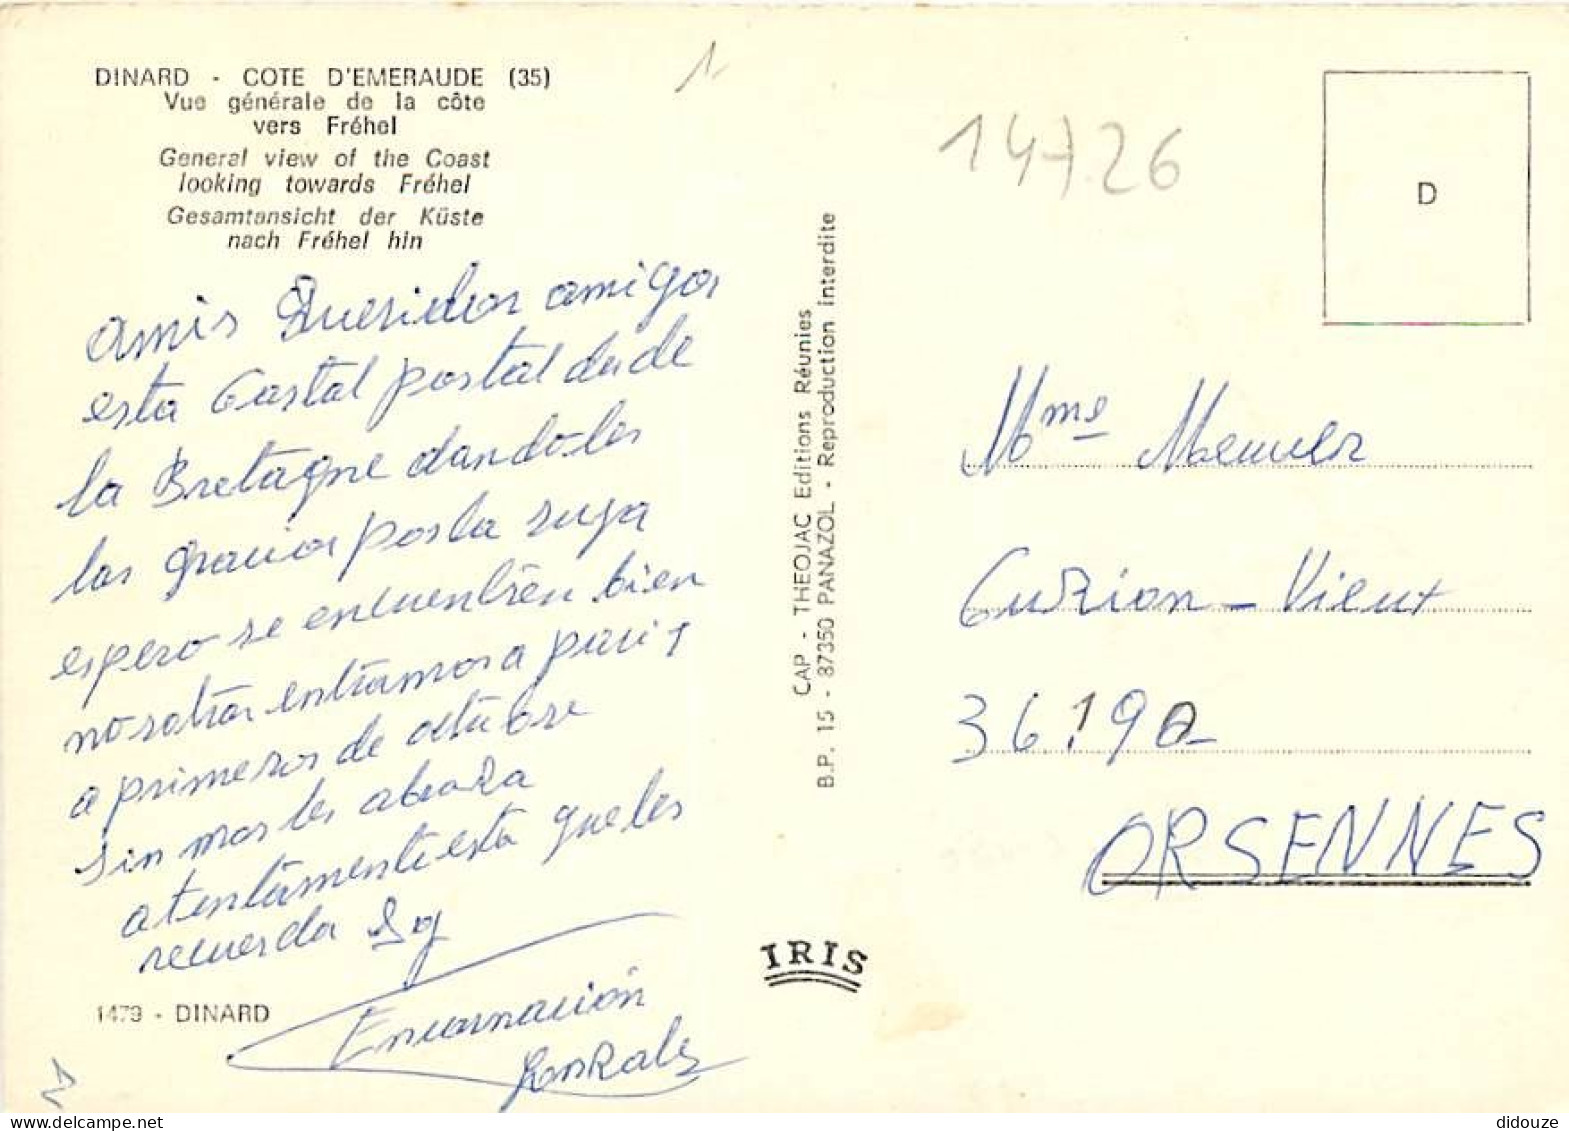 DINARD - COTE D'EMERAUDE (35)
Vue générale de la côte
vers Fréhel
General view of the Coast
looking towards Fréhel
Gesamtansicht der Küste
nach Fréhel hin
amis Queridos amigos
esta Castal postal desde
la Bretagne dandoles
las gracias por la suya
espero se encuentren bien
nosotros entramos a paris
a primeros de octubre
sin mas les abraza
atentamente esta que les
recuerda
Encarnación
Gonzalez
1479 - DINARD
1
14726
CAP - THEOJAC Editions Réunies
B.P. 15 - 87350 PANAZOL - Reproduction interdite
IRIS
D
Mme
Cuzion - Vieux
36190
ORSENNES
didouze